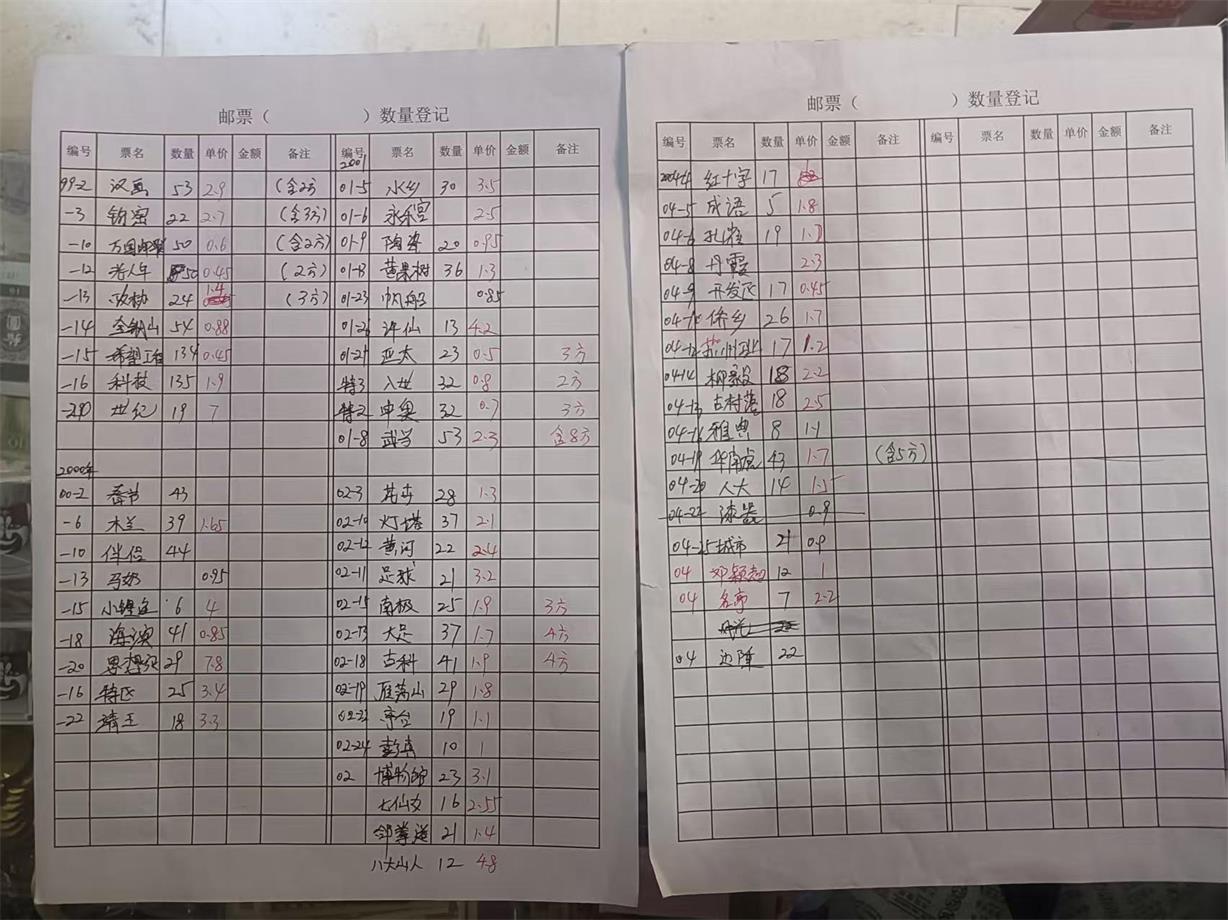 邮票（ ）数量登记
编号 票名 数量 单价 金额 备注 编号 票名 数量 单价 金额 备注
2001
99-2 汉画 53 2.9 (含2方) 01-5 水乡 30 3.5
-3 钧窑 22 2.7 (含3方) 01-6 永乐宫 2.5
-10 万国邮联 50 0.6 (含2方) 01-9 陶瓷 20 0.95
-12 老人年 50 0.45 (2方) 01-13 黄果树 36 1.3
-13 政协 24 1.4 (3方) 01-23 帆船 0.85
-14 金钢山 54 0.88 01-26 许仙 13 4.2
-15 希望工程 134 0.45 01-21 亚太 23 0.5 3方
-16 科技 135 1.9 特3 入世 32 0.8 2方
-20 世纪 19 7 特2 申奥 32 0.7 3方
01-8 武夷 53 2.3 含8方
2000年
00-2 春节 43 02-3 花卉 28 1.3
-6 木兰 39 1.65 02-10 灯塔 37 2.1
-10 伴侣 44 02-12 黄河 22 2.4
-13 马奶 0.95 02-11 足球 21 3.2
-15 小鲤鱼 6 4 02-15 南极 25 1.9 3方
-18 海滨 41 0.85 02-13 大足 37 1.7 4方
-20 思想家 29 7.8 02-18 古科 41 1.9 4方
-16 特区 25 3.4 02-19 雁荡山 29 1.8
-22 靖王 18 3.3 02-22 亭台 19 1.1
02-24 彭真 10 1
02 博物馆 23 3.1
七仙女 16 2.55
邹奉道 21 1.4
八大山人 12 4.8
邮票（ ）数量登记
编号 票名 数量 单价 金额 备注 编号 票名 数量 单价 金额 备注
2004-4 红十字 17
04-5 成语 5 1.8
04-6 孔雀 19 1.7
04-8 丹霞 2.3
04-9 开发区 17 0.45
04-10 侨乡 26 1.7
04-12 苏州 17 1.2
04-14 柳毅 18 2.2
04-13 古村落 18 2.5
04-16 雅典 8 1.1
04-19 华南虎 43 1.7 (含5方)
04-20 人大 14 1.15
04-22 漆器 0.9
04-25 城市 21 0.9
04 邓颖超 12 1
04 名亭 7 2.2
04 边陲 22